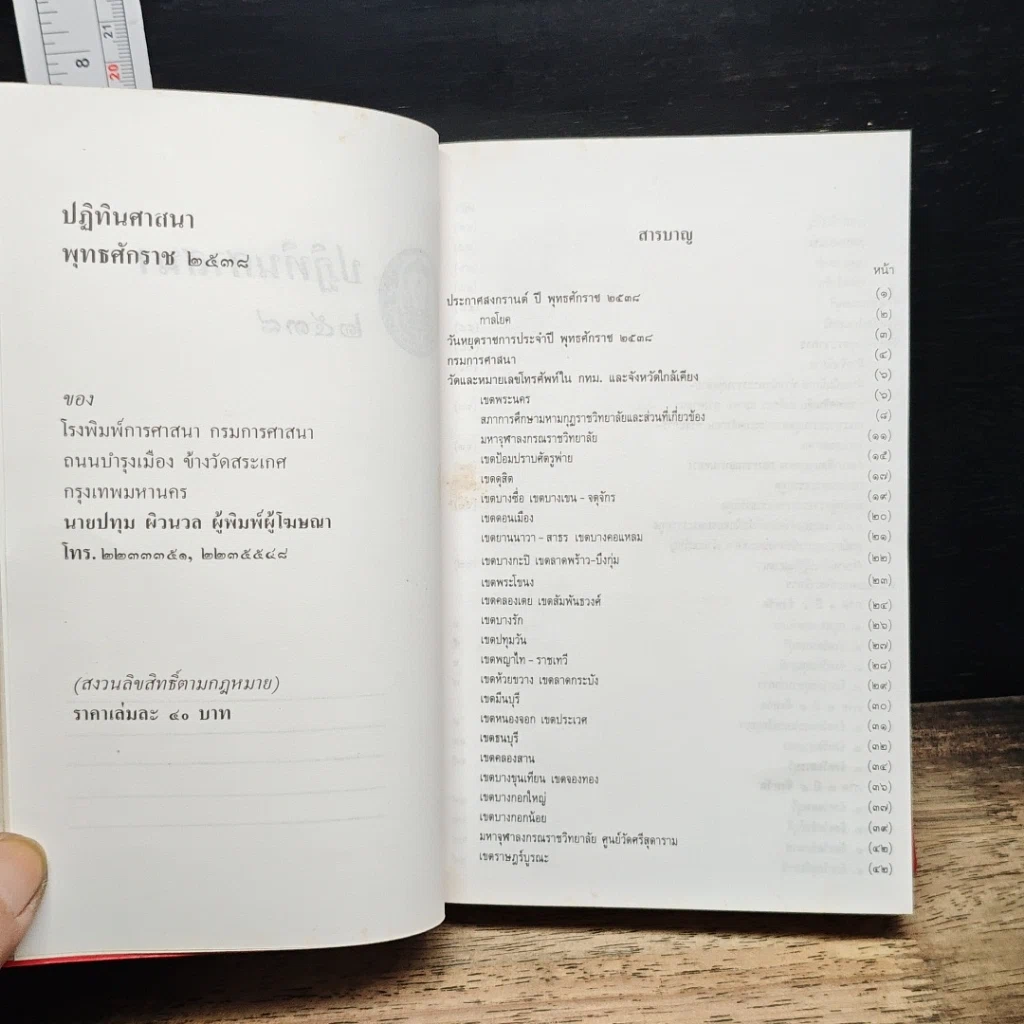 8
21
20
ปฏิทินศาสนา
พุทธศักราช ๒๕๓๘
ของ
โรงพิมพ์การศาสนา กรมการศาสนา
ถนนบำรุงเมือง ข้างวัดสระเกศ
กรุงเทพมหานคร
นายปทุม ผิวนวล ผู้พิมพ์ผู้โฆษณา
โทร. ๒๒๓๓๓๕๑, ๒๒๓๕๕๔๘
(สงวนลิขสิทธิ์ตามกฎหมาย)
ราคาเล่มละ ๔๐ บาท
สารบาญ
หน้า
ประกาศสงกรานต์ ปี พุทธศักราช ๒๕๓๘ (๑)
กาลโยค (๒)
วันหยุดราชการประจำปี พุทธศักราช ๒๕๓๘ (๓)
กรมการศาสนา (๔)
วัดและหมายเลขโทรศัพท์ใน กทม. และจังหวัดใกล้เคียง (๖)
เขตพระนคร (๖)
สภาการศึกษามหามกุฏราชวิทยาลัยและส่วนที่เกี่ยวข้อง (๘)
มหาจุฬาลงกรณราชวิทยาลัย (๑๑)
เขตป้อมปราบศัตรูพ่าย (๑๕)
เขตดุสิต (๑๗)
เขตบางซื่อ เขตบางเขน - จตุจักร (๑๙)
เขตดอนเมือง (๒๐)
เขตยานนาวา - สาธร เขตบางคอแหลม (๒๑)
เขตบางกะปิ เขตลาดพร้าว-บึงกุ่ม (๒๒)
เขตพระโขนง (๒๓)
เขตคลองเตย เขตสัมพันธวงศ์ (๒๔)
เขตบางรัก (๒๖)
เขตปทุมวัน (๒๗)
เขตพญาไท - ราชเทวี (๒๘)
เขตห้วยขวาง เขตลาดกระบัง (๒๙)
เขตมีนบุรี (๓๐)
เขตหนองจอก เขตประเวศ (๓๑)
เขตธนบุรี (๓๒)
เขตคลองสาน (๓๔)
เขตบางขุนเทียน เขตจองทอง (๓๖)
เขตบางกอกใหญ่ (๓๗)
เขตบางกอกน้อย (๓๙)
มหาจุฬาลงกรณราชวิทยาลัย ศูนย์วัดศรีสุดาราม (๔๒)
เขตราษฎร์บูรณะ (๔๒)